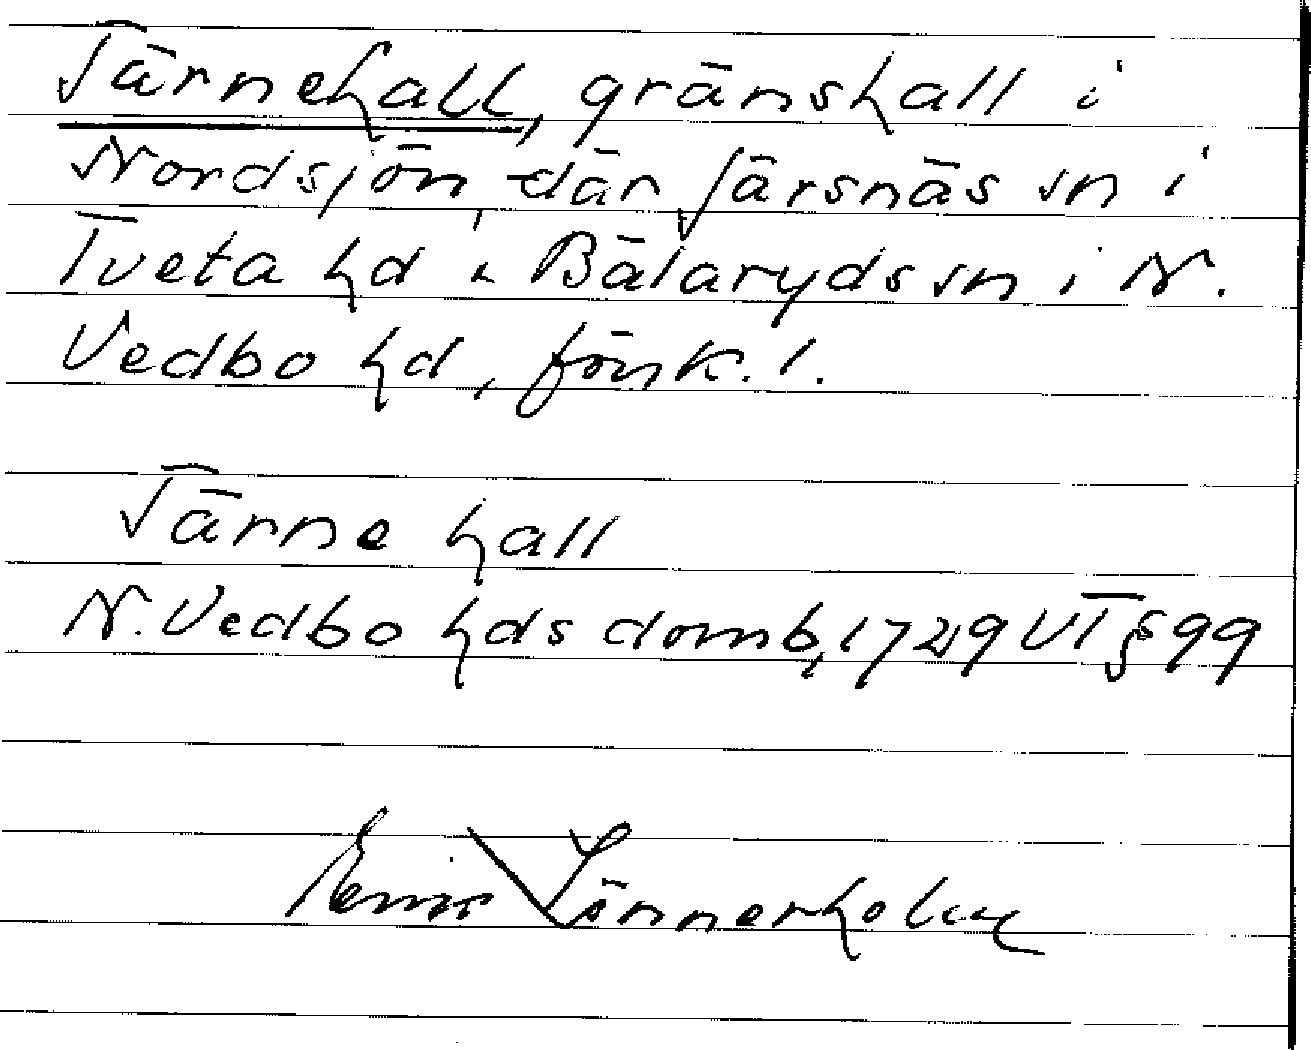 Tärnehall, gränshall i
Nordsjön, där Järsnäs sn i
Tveta hd o. Bälaryds sn i N.
Vedbo hd, försk. l.
Tärne hall
N. Vedbo hds domb, 1729 VT § 99
Linnerholm